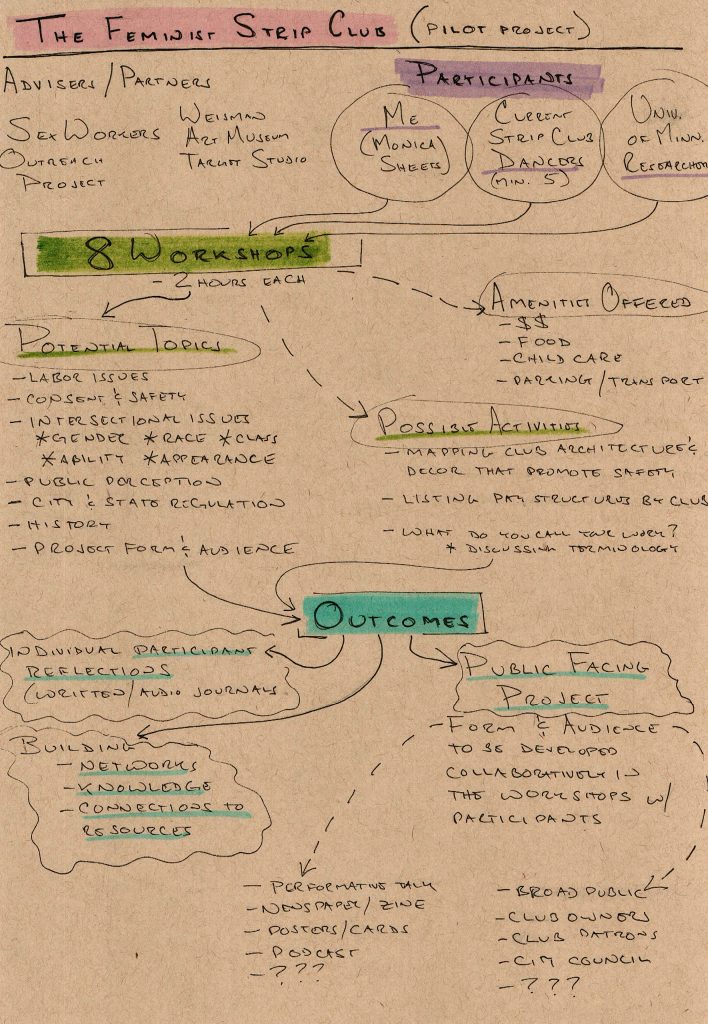 THE FEMINIST STRIP CLUB (PILOT PROJECT)
ADVISERS/PARTNERS
SEX WORKERS
OUTREACH
PROJECT
WEISMAN
ART MUSEUM
TARGET STUDIO
PARTICIPANTS
ME
(MONICA
SHEETS)
CURRENT
STRIP CLUB
DANCERS
(MIN. 5)
UNIV.
OF MINN.
RESEARCHER
8 WORKSHOPS
- 2 HOURS EACH
AMENITIES OFFERED
- $$
- FOOD
- CHILD CARE
- PARKING/TRANSPORT
POTENTIAL TOPICS
- LABOR ISSUES
- CONSENT & SAFETY
- INTERSECTIONAL ISSUES
*GENDER *RACE *CLASS
*ABILITY *APPEARANCE
- PUBLIC PERCEPTION
- CITY & STATE REGULATION
- HISTORY
- PROJECT FORM & AUDIENCE
POSSIBLE ACTIVITIES
- MAPPING CLUB ARCHITECTURE &
DECOR THAT PROMOTE SAFETY
- LISTING PAY STRUCTURES BY CLUB
- WHAT DO YOU CALL YOUR WORK?
* DISCUSSING TERMINOLOGY
OUTCOMES
INDIVIDUAL PARTICIPANT
REFLECTIONS
(WRITTEN/AUDIO JOURNALS
BUILDING
- NETWORKS
- KNOWLEDGE
- CONNECTIONS TO
RESOURCES
PUBLIC FACING
PROJECT
FORM & AUDIENCE
TO BE DEVELOPED
COLLABORATIVELY IN
THE WORKSHOPS W/
PARTICIPANTS
- PERFORMATIVE TALK
- NEWSPAPER/ZINE
- POSTERS/CARDS
- PODCAST
- ???
- BROAD PUBLIC
- CLUB OWNERS
- CLUB PATRONS
- CITY COUNCIL
- ???